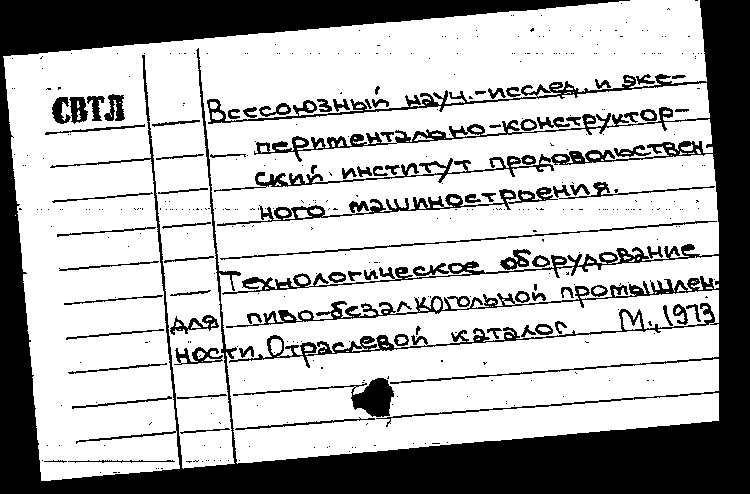 СВТЛ
Всесоюзный науч.-исслед. и экс-
периментально-конструктор-
ский институт продовольствен-
ного машиностроения.
Технологическое оборудование
для пиво-безалкогольной промышлен-
ности. Отраслевой каталог. М., 1973